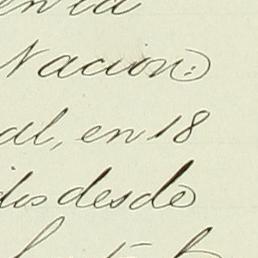 en la
Nacion:
al, en 18
dos desde